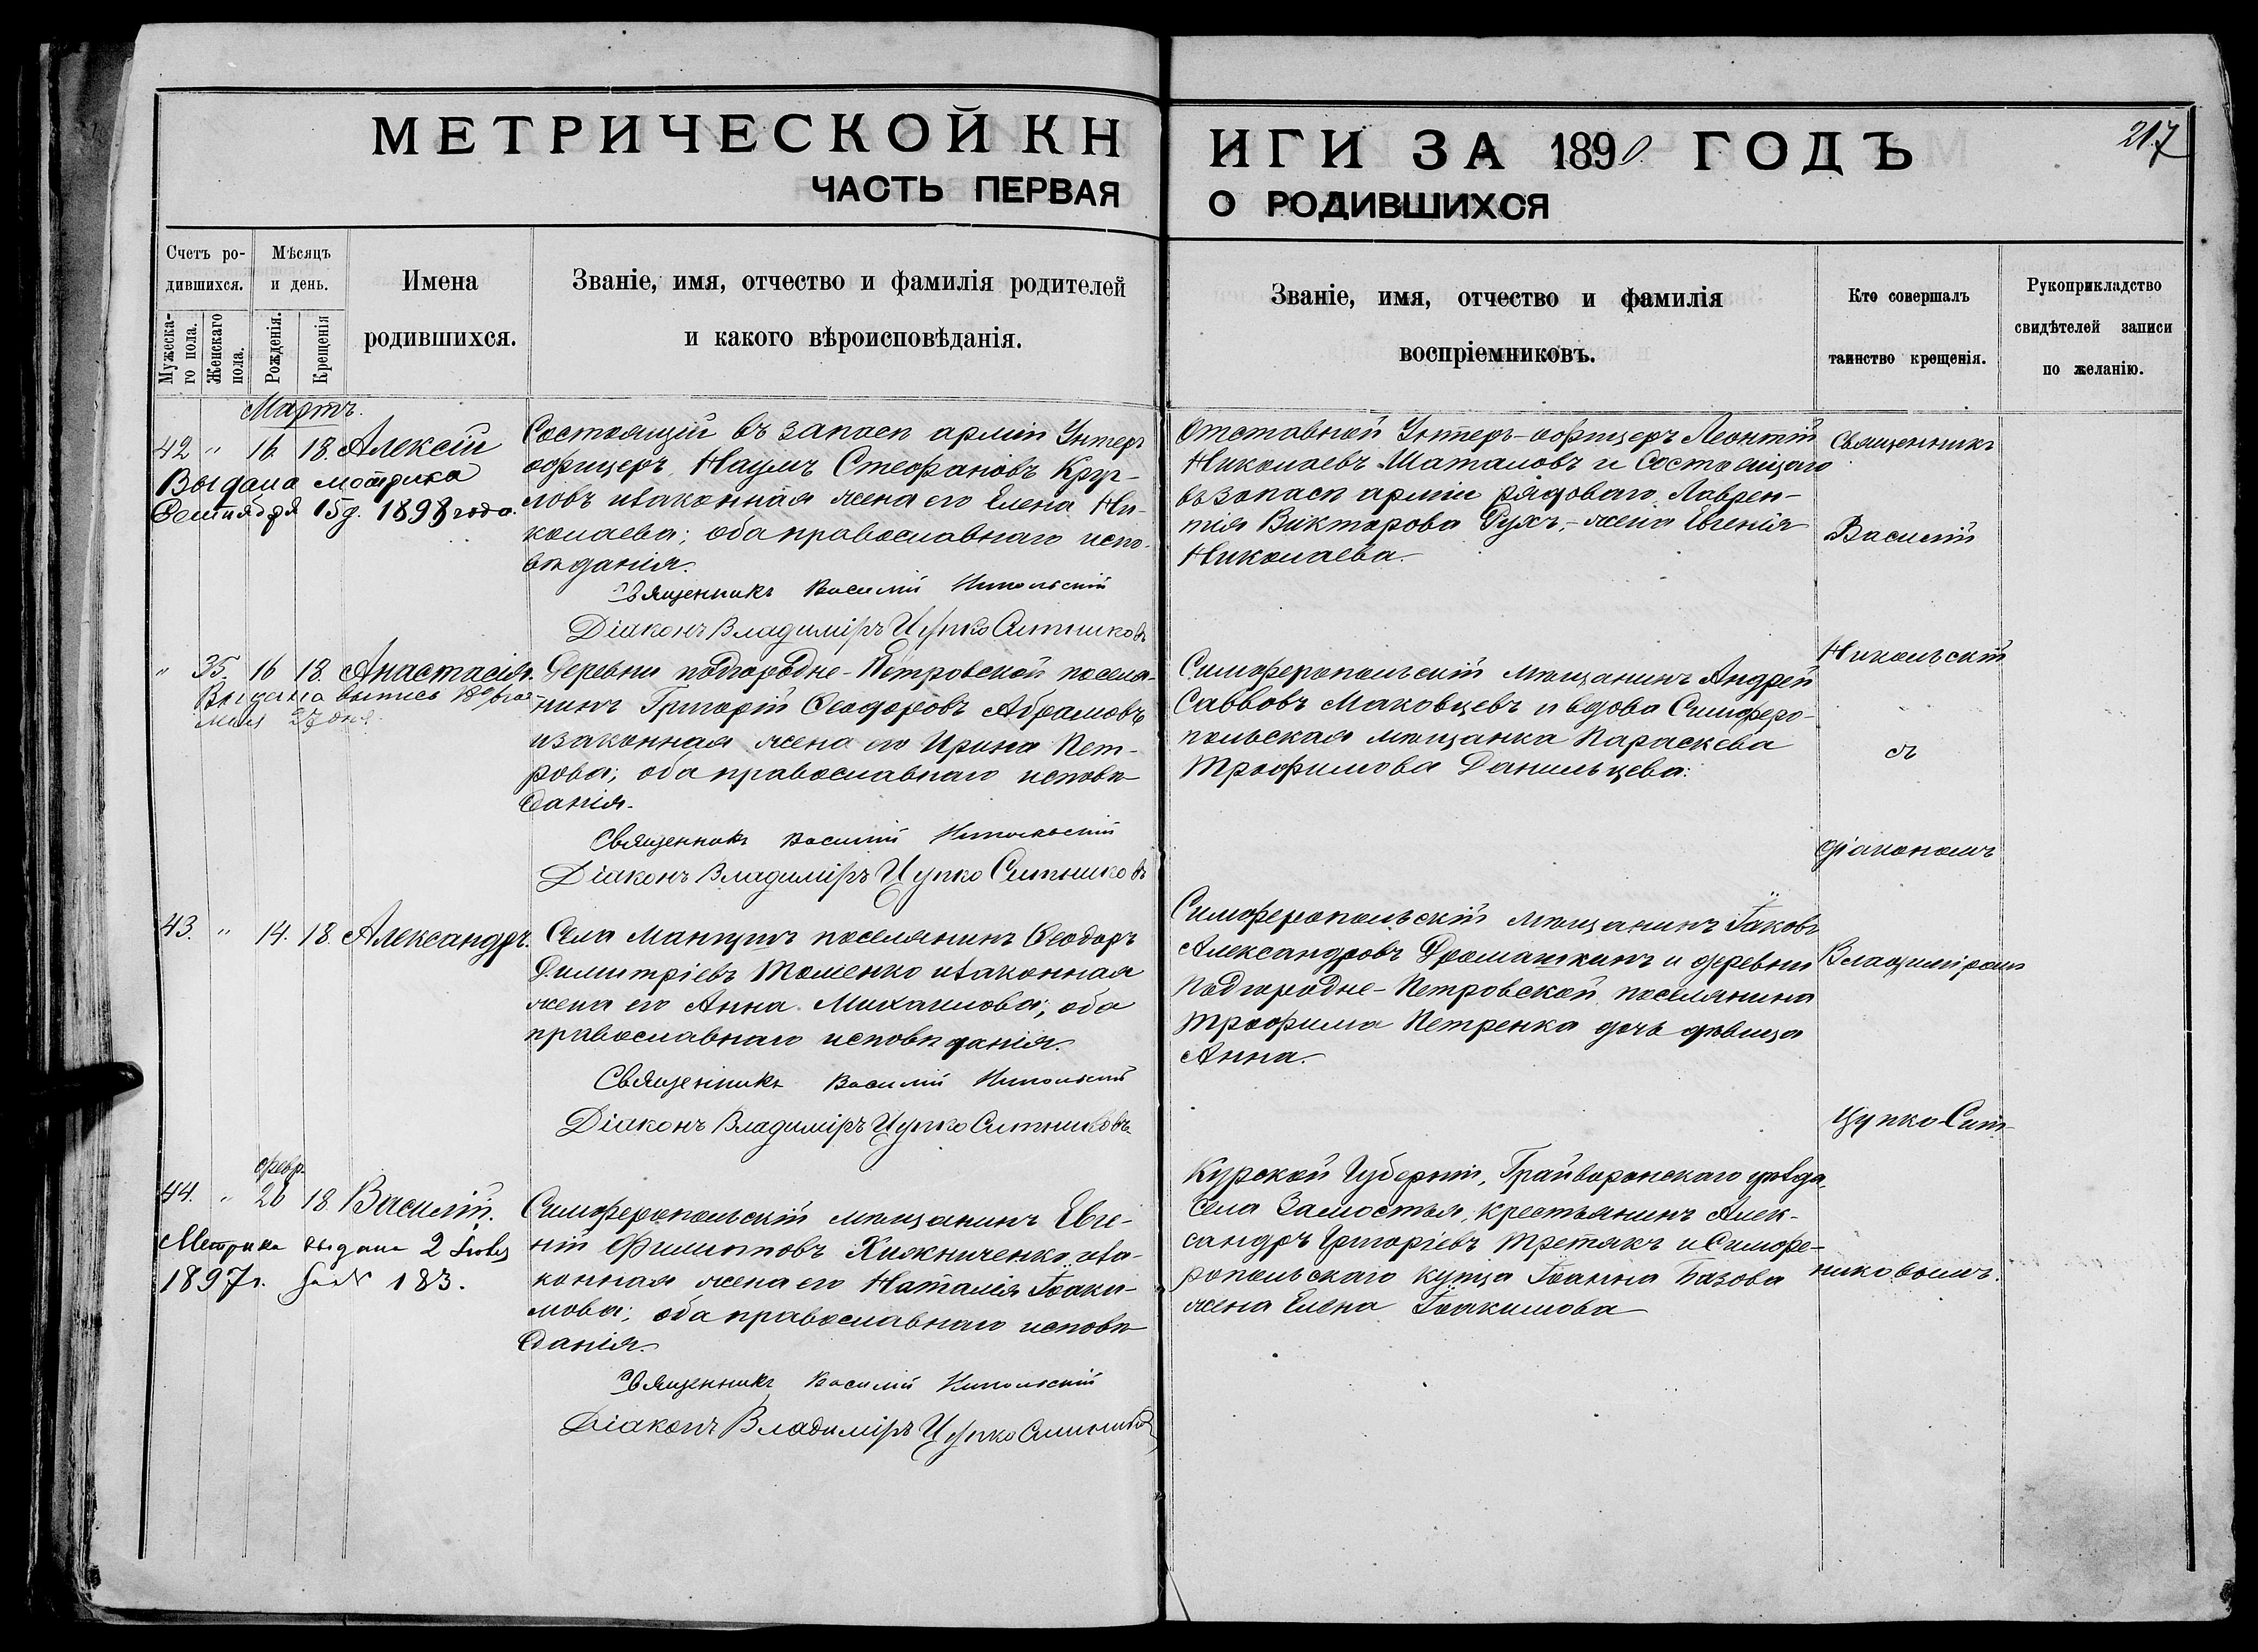 МЕТРИЧЕСКОЙ КН
ЧАСТЬ ПЕРВАЯ
Счетъ ро-
дившихся.
Мужеска-
го пола.
Женскаго
пола.
Мѣсяцъ
и день.
Рожденія.
Крещенія
Имена
родившихся.
Званіе, имя, отчество и фамилія родителей
и какого вѣроисповѣданія.
Мартъ.
42 " 16. 18. Алексій
Выдана метрика
Сентября 15 д. 1898 года.
Состоящій въ запасѣ арміи Унтеръ
офицеръ Наумъ Стефановъ Круг-
ловъ и законная жена его Елена Ни-
колаева; оба православнаго испо-
вѣданія.
Священникъ Василій Никольскій
Діаконъ Владиміръ Цупко Ситниковъ
" 35. 16 18. Анастасія.
Выдана выпись
мая 27 дня.
Деревни подгородне-Петровской поселя-
нинъ Григорій Ѳеодоровъ Абрамовъ
и законная жена его Ирина Пет-
рова; оба православнаго исповѣ
данія.
Священникъ Василій Никольскій
Діаконъ Владиміръ Цупко Ситниковъ
43. " 14. 18. Александръ.
Села Мангушъ поселянинъ Ѳеодоръ
Димитріевъ Томенко и законная
жена его Анна Михаилова; оба
православнаго исповѣданія.
Священникъ Василій Никольскій
Діаконъ Владиміръ Цупко Ситниковъ
февр.
44. " 26 18 Василій.
Метрика выдана 2
1897 г. за № 183.
Симферопольскій мѣщанинъ Евге-
ній Филипповъ Хижниченко и за-
конная жена его Наталія Іоаки-
мова; оба православнаго исповѣ
данія.
Священникъ Василій Никольскій
Діаконъ Владиміръ Цупко Ситниковъ
ИГИ ЗА 1890 ГОДЪ
О РОДИВШИХСЯ
217
Званіе, имя, отчество и фамилія
воспріемниковъ.
Кто совершалъ
таинство крещенія.
Рукоприкладство
свидѣтелей записи
по желанію.
Отставной Унтеръ-офицеръ Леонтій
Николаевъ Шаталовъ и Состоящаго
въ запасѣ арміи рядоваго Лаврен-
тія Викторова Рухъ,-жена Евгенія
Николаева.
Симферопольскій мѣщанинъ Андрей
Саввовъ Маковцевъ и вдова Симферо-
польская мѣщанка Параскева
Трофимова Данильцева.
Симферопольскій мѣщанинъ Іаковъ
Александровъ Дромашкинъ и деревни
Подгородне-Петровской поселянина
Трофима Петренка дочь дѣвица
Анна.
Курской Губерніи, Грайворонскаго уѣзда,
села Замостья, крестьянинъ Алек-
сандръ Григоріевъ Третякъ и Симфе-
ропольскаго купца Іоанна Базова
жена Елена Іоакимова
Священникъ
Василій
Никольскій
съ
діакономъ
Владиміромъ
Цупко-Сит-
никовымъ.